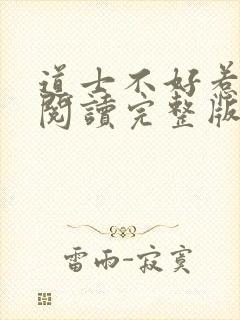 道士不好惹
閱讀完整版
雷雨-寂寞